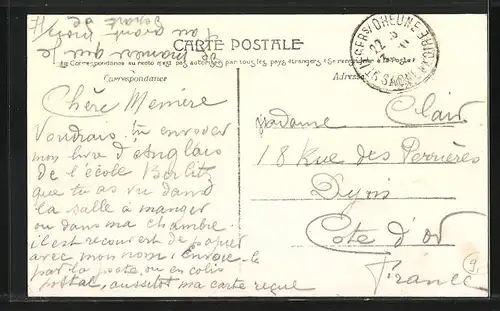 CARTE POSTALE
La Correspondance au recto n'est pas autorisée par tous les pays étrangers (Se renseigner à la Poste)
Correspondance
Adresse
Chère Memère
Voudrais-tu envoyer
mon livre d'Anglais
de l'école Berlitz
que tu as vu dans
la salle à manger
ou dans ma chambre
il est recouvert de papier
avec mon nom, Envoie-le
par la poste ou en colis
postal, aussitôt ma carte reçue
de manier que le
avant
Madame Clair
18 Rue des Perrières
Dijon
Côte d'or
France
ST LEGER S/ DHEUNE
SAONE ET LOIRE
22
9.